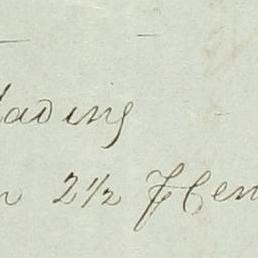 lading
n 2½ pr Cen